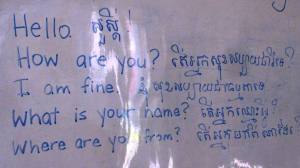 Hello សួស្តី!
How are you? តើអ្នកសុខសប្បាយជាទេ?
I am fine. ខ្ញុំសុខសប្បាយជាធម្មតាទេ
What is your name? តើអ្នកឈ្មោះអ្វី?
Where are you from? តើអ្នកមកពីណា